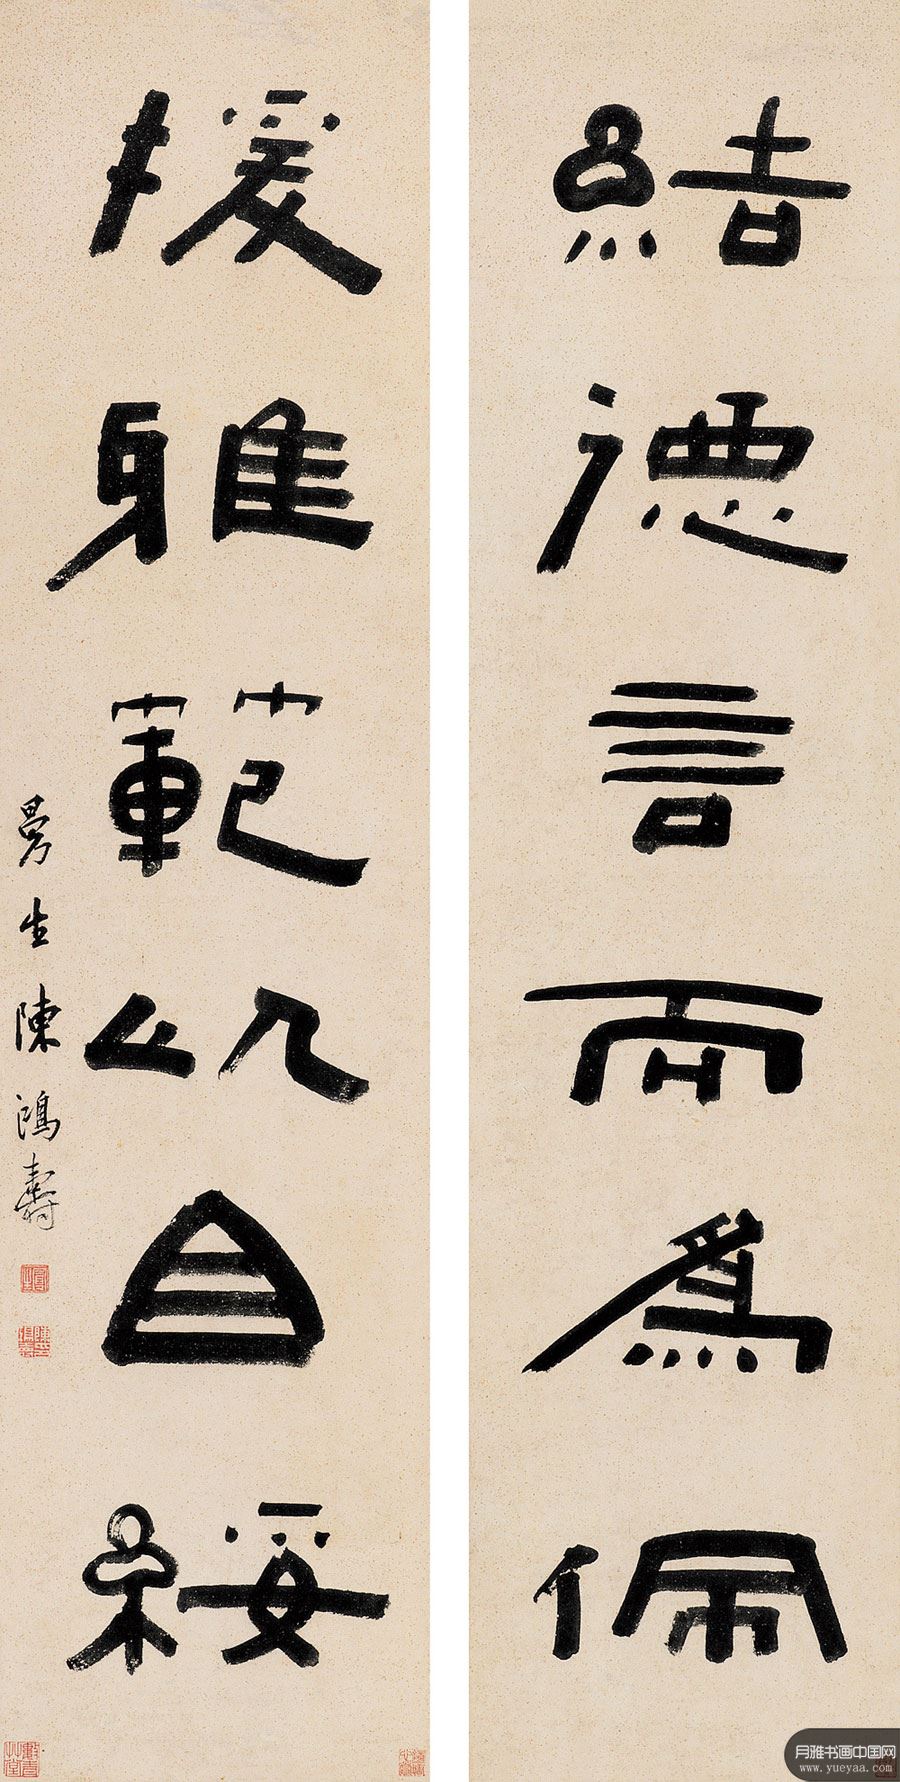 結德言而為佩
援雅範以自綏
曼生陳鴻壽
月雅书画中国网
www.yueyaa.com